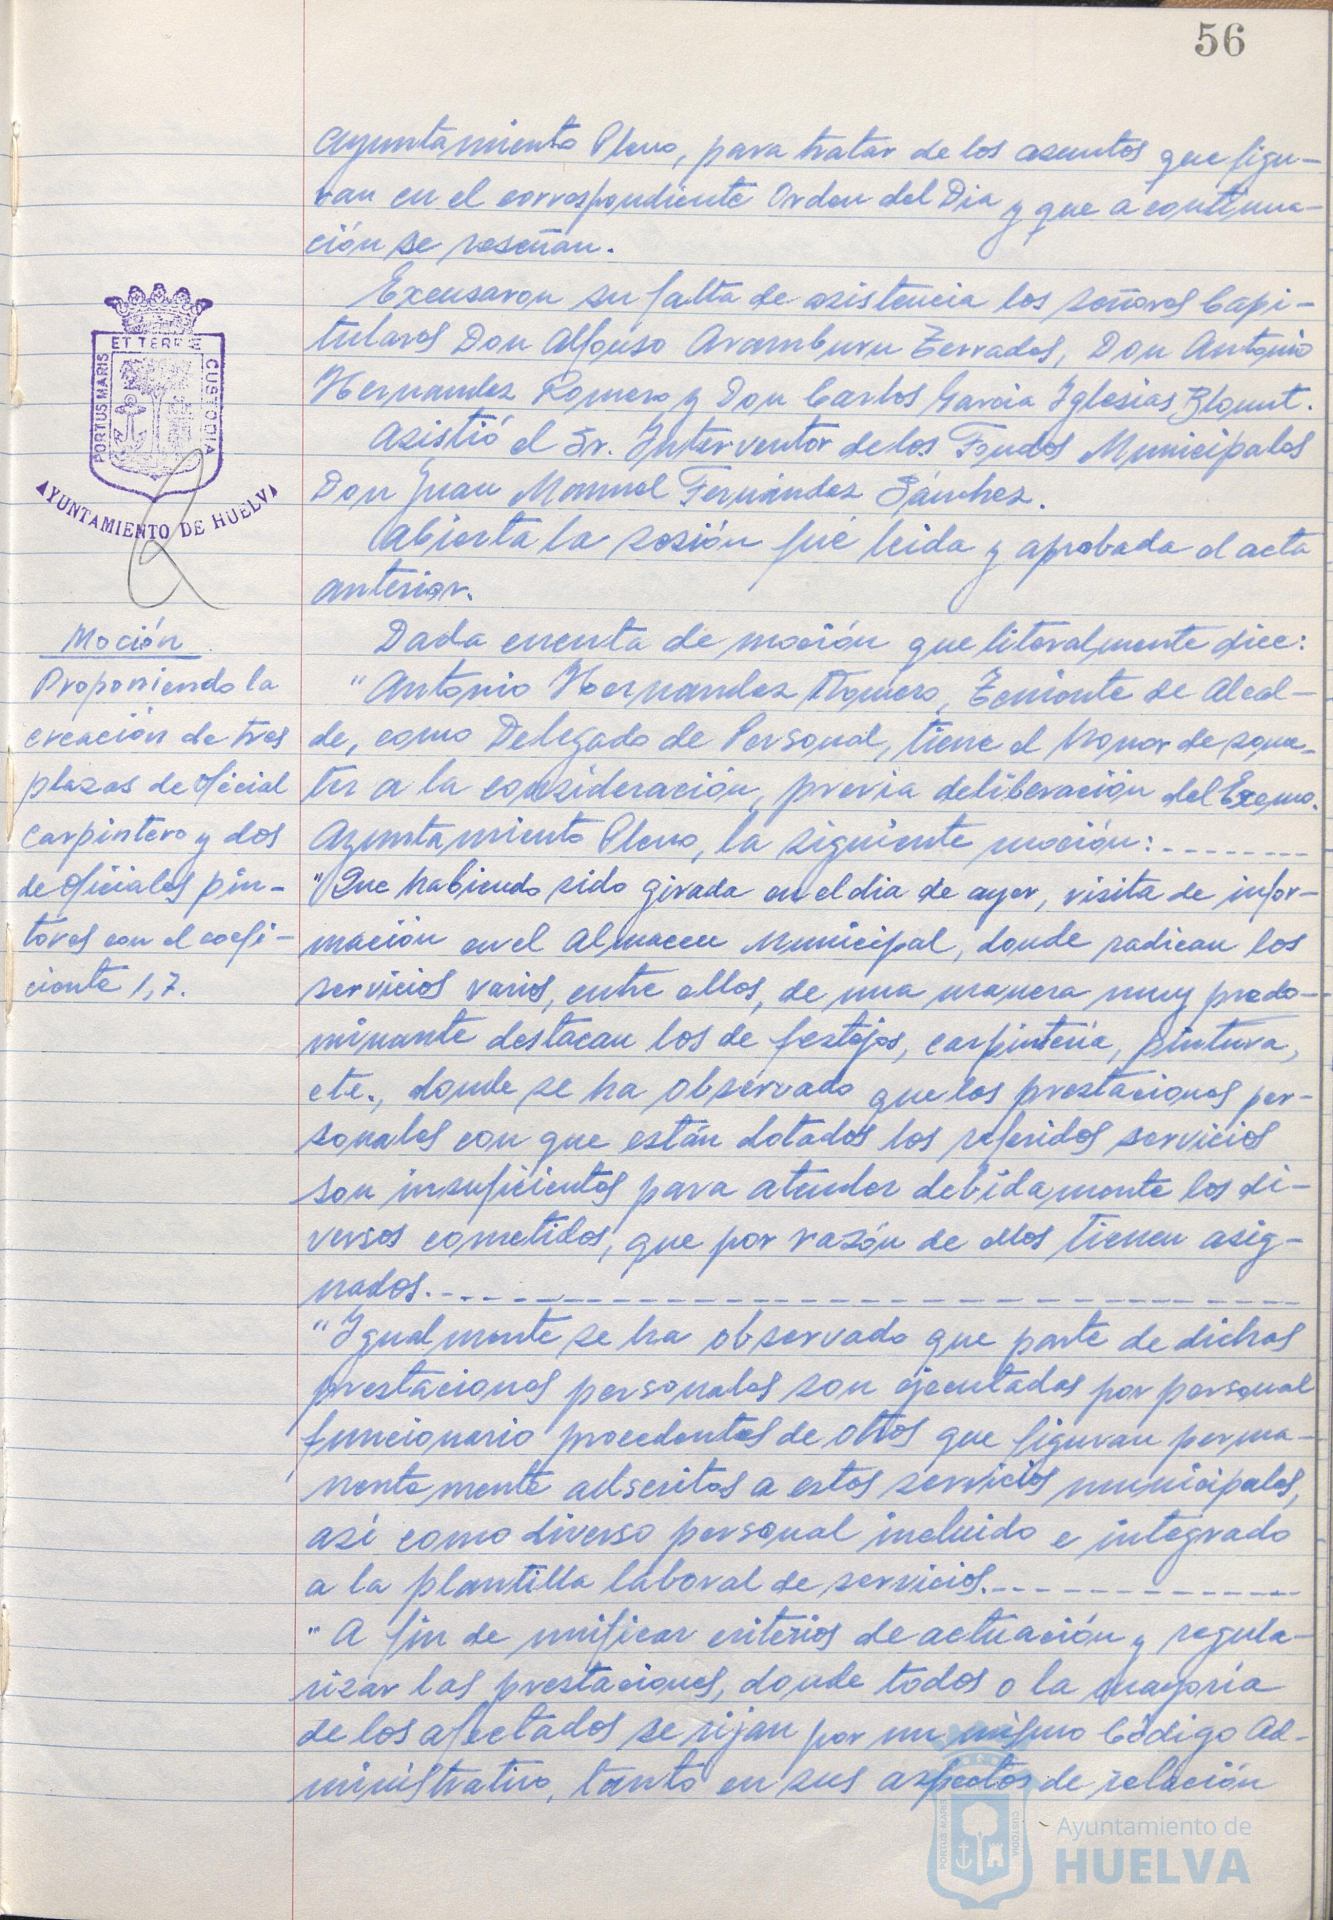 56
Ayuntamiento Pleno, para tratar de los asuntos que figu-
ran en el correspondiente Orden del Dia y que a continua-
ción se reseñan.
Excusaron su falta de asistencia los señores Capi-
tulares Don Alfonso Aramburu Terrades, Don Antonio
Hernandez Romero y Don Carlos Garcia Iglesias Blount.
Asistió el Sr. Interventor de los Fondos Municipales
Don Juan Manuel Fernández Sánchez.
Abierta la sesión fué leida y aprobada el acta
anterior.
ET TERRE
PORTUS MARIS
CUSTODIA
AYUNTAMIENTO DE HUELVA
Moción
Proponiendo la
creación de tres
plazas de oficial
carpintero y dos
de oficiales pin-
tores con el coefi-
ciente 1,7.
Dada cuenta de moción que literalmente dice:
"Antonio Hernandez Romero, Teniente de Alcal-
de, como Delegado de Personal, tiene el honor de some-
ter a la consideración, previa deliberación del Excmo.
Ayuntamiento Pleno, la siguiente moción:--------
"Que habiendo sido girada en el dia de ayer, visita de infor-
mación en el Almacen Municipal, donde radican los
servicios varios, entre ellos, de una manera muy predo-
minante destacan los de festejos, carpinteria, pintura,
etc., donde se ha observado que las prestaciones per-
sonales con que están dotados los referidos servicios
son insuficientes para atender debidamente los di-
versos cometidos, que por razón de ellos tienen asig-
nados.--------------------
"Igualmente se ha observado que parte de dichas
prestaciones personales son ejecutadas por personal
funcionario procedentes de otros que figuran perma-
nentemente adscritos a estos servicios municipales,
asi como diverso personal incluido e integrado
a la plantilla laboral de servicios.------------
"A fin de unificar criterios de actuación y regula-
rizar las prestaciones, donde todos o la mayoria
de los afectados se rijan por un mismo Código Ad-
ministrativo, tanto en sus aspectos de relación
PORTUS MARIS
CUSTODIA
Ayuntamiento de
HUELVA